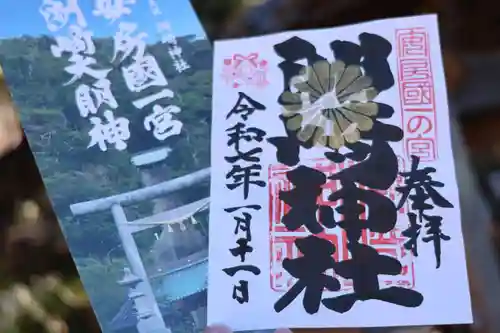 安房国一宮
洲崎大明神
安房國一の宮
奉拝
洲崎神社
令和七年一月十一日